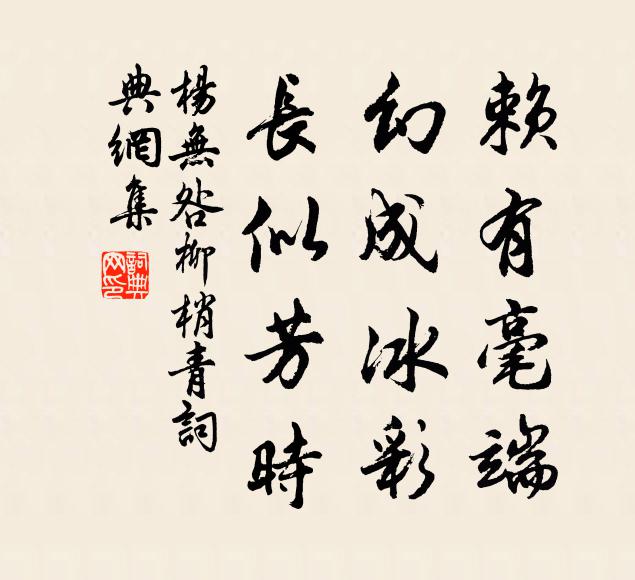 賴有毫端
幻成冰彩
長似芳時
楊無咎柳梢青詞
典網集
詞典
网印